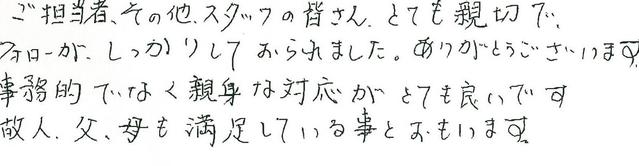 ご担当者、その他、スタッフの皆さん、とても親切で、
フォローが、しっかりしておられました。ありがとうございます。
事務的でなく親身な対応がとても良いです
故人、父、母も満足している事とおもいます。